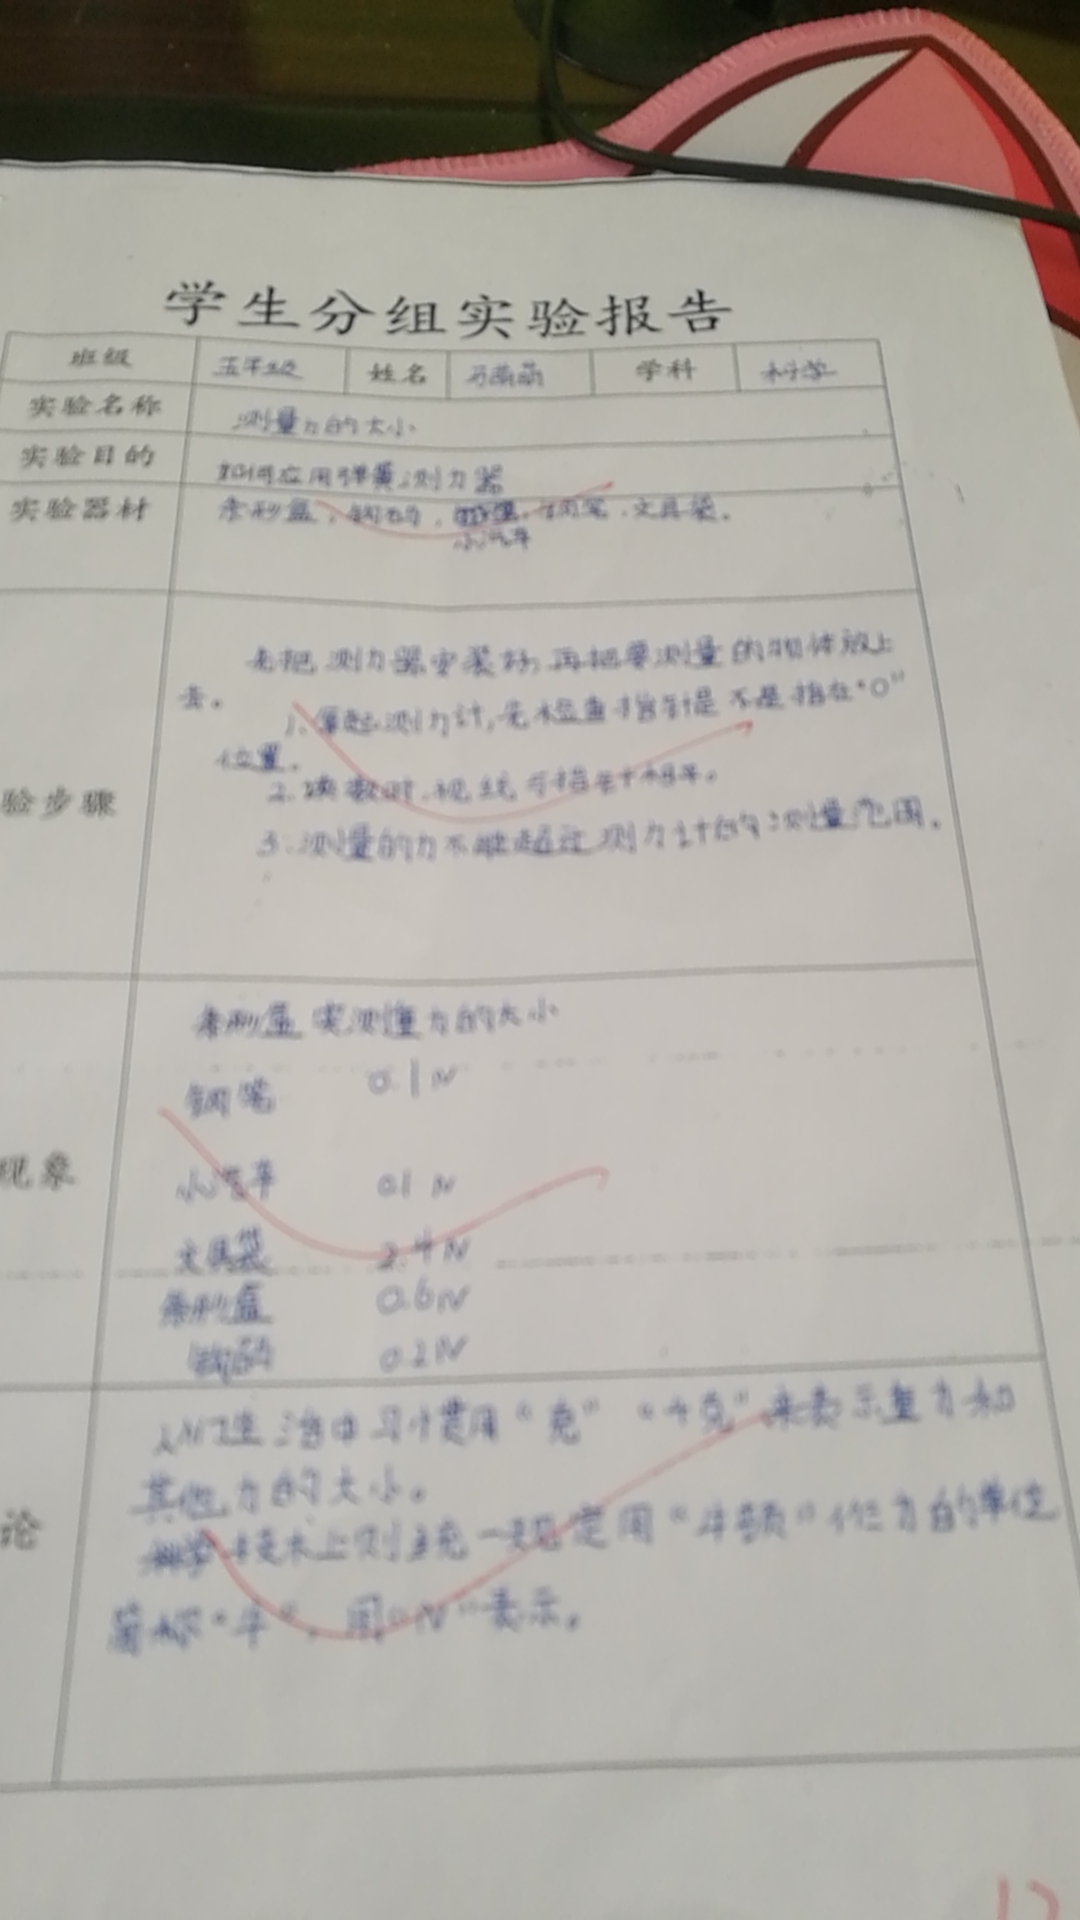 学生分组实验报告
班级 五年级 姓名 学科 科学
实验名称 测量力的大小
实验目的 如何应用弹簧测力器
实验器材 条形盒，钩码，钢笔，文具袋。
小汽车
先把测力器安装好，再把要测量的物体放上
去。
1.拿起测力计，先检查指针是不是指在“0”
位置。
验步骤
2.读数时，视线与指针相平。
3.测量的力不能超过测力计的测量范围。
条形盒 实测量力的大小
钢笔 0.1N
现象
小汽车 0.1N
文具袋 2.4N
条形盒 0.6N
钩码 0.2N
人们生活中习惯用“克”“千克”来表示重力和
其他力的大小。
论
技术上则统一规定用“牛顿”作力的单位
简称“牛”，用“N”表示。